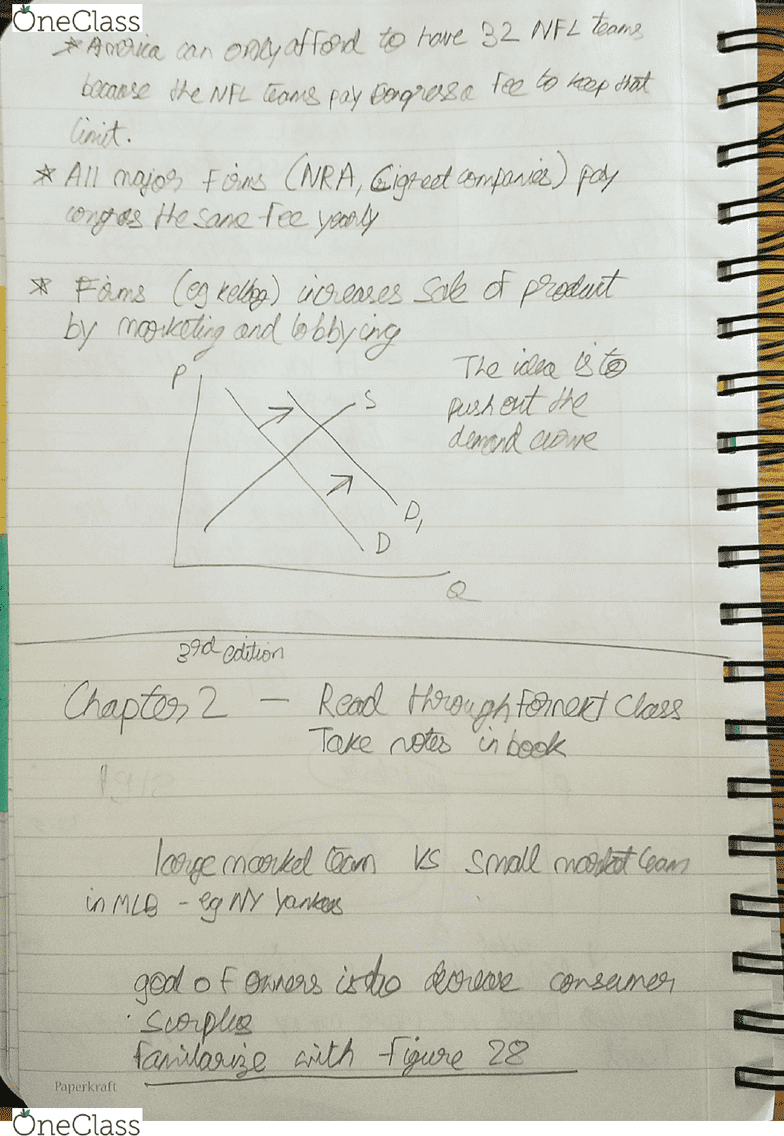 OneClass
* America can only afford to have 32 NFL teams
because the NFL teams pay Congress a fee to keep that
limit.
* All major firms (NRA, Cigreet companies) pay
the same fee yearly
* Firms (eg ) increases Sale of product
by marketing and lobbying
P
The idea is to
S
push out the
demand curve
D1
D
Q
3rd edition
Chapter 2 — Read through for next Class
Take notes in book
large market team VS small market team
in MLB - eg NY Yankees
goal of owners is to decrease consumer
familarize with figure 28
Paperkraft
OneClass